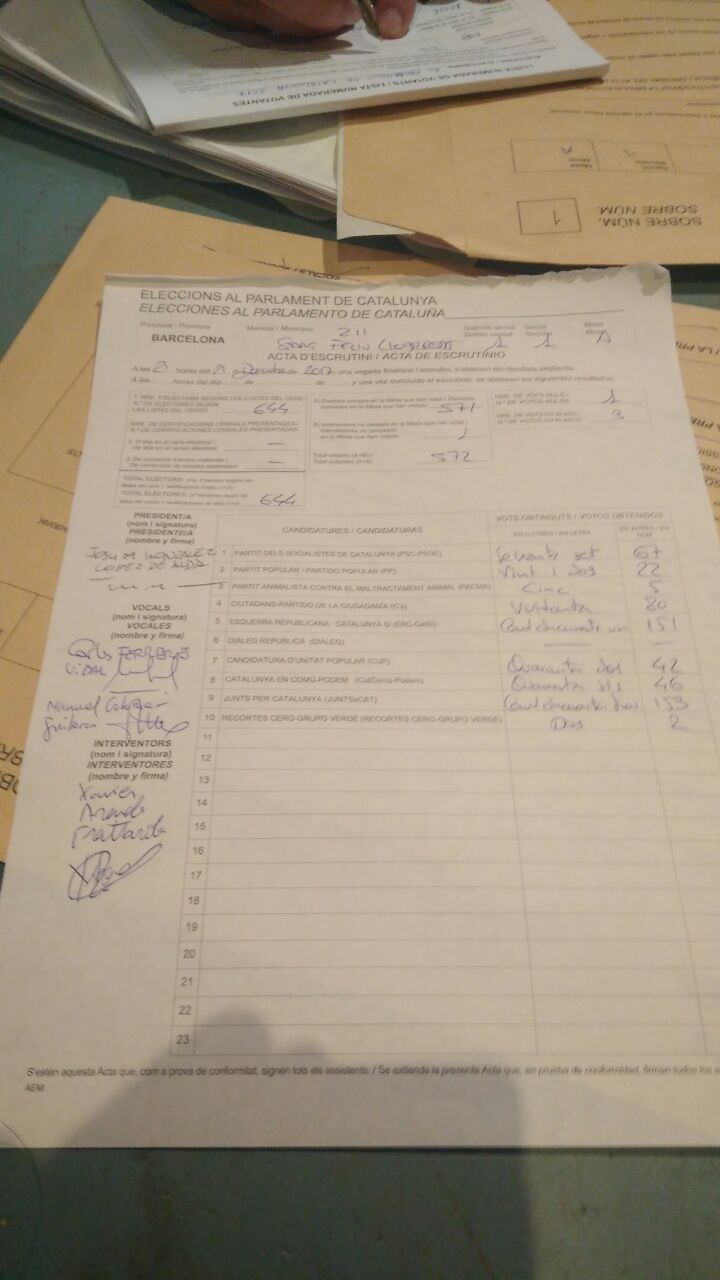 LLISTA NUMERADA DE VOTANTS / LISTA NUMERADA DE VOTANTES
SOBRE NÚM.
SOBRE NÚM.
1
ELECCIONS AL PARLAMENT DE CATALUNYA
ELECCIONES AL PARLAMENTO DE CATALUÑA
Província / Provincia
Municipi / Municipio
211
Districte censal
Distrito censal
Secció
Sección
Mesa
Mesa
BARCELONA
SANT FELIU LLOBREGAT 1 1 A
ACTA D'ESCRUTINI / ACTA DE ESCRUTINIO
A les 21 hores del 21 de Desembre de 2017, una vegada finalitzat l'escrutini, s'obtenen els resultats següents:
A las hores del día de de y una vez concluido el escrutinio, se obtienen los siguientes resultados:
1. NRE. D'ELECTORS SEGONS LES LLISTES DEL CENS /
N.º DE ELECTORES SEGÚN
LAS LISTAS DEL CENSO
644
NRE. DE CERTIFICACIONS CENSALS PRESENTADES /
N.º DE CERTIFICACIONES CENSALES PRESENTADAS
TOTAL ELECTORS:
TOTAL ELECTORES:
644
A) Electors censats en la Mesa que han votat / Electores
censados en la Mesa que han votado
571
B) Interventors no censats en la Mesa que han votat /
Interventores no censados
en la Mesa que han votado
1
Total votants (A+B) /
Total votantes (A+B)
572
NRE. DE VOTS NULS /
N.º DE VOTOS NULOS
1
NRE. DE VOTS EN BLANC /
N.º DE VOTOS EN BLANCO
3
PRESIDENT/A
(nom i signatura)
PRESIDENTE/A
(nombre y firma)
GONZALEZ
LOPEZ DE ALDA
VOCALS
(nom i signatura)
VOCALES
(nombre y firma)
Carlos
VIDAL
Manuel
INTERVENTORS
(nom i signatura)
INTERVENTORES
(nombre y firma)
Xavier
CANDIDATURES / CANDIDATURAS
VOTS OBTINGUTS / VOTOS OBTENIDOS
EN LLETRES / EN LETRA
EN XIFRES / EN NÚM.
1 PARTIT DELS SOCIALISTES DE CATALUNYA (PSC-PSOE) Seixanta set 67
2 PARTIT POPULAR / PARTIDO POPULAR (PP) Vint i dos 22
3 PARTIT ANIMALISTA CONTRA EL MALTRACTAMENT ANIMAL (PACMA) Cinc 5
4 CIUTADANS-PARTIDO DE LA CIUDADANÍA (C's) Vuitanta 80
5 ESQUERRA REPUBLICANA - CATALUNYA SÍ (ERC-CatSí) 151
6 DIÀLEG REPUBLICÀ (DIÀLEG) — —
7 CANDIDATURA D'UNITAT POPULAR (CUP) Quaranta dos 42
8 CATALUNYA EN COMÚ-PODEM (CatComú-Podem) Quaranta sis 46
9 JUNTS PER CATALUNYA (JUNTSxCAT) 153
10 RECORTES CERO-GRUPO VERDE (RECORTES CERO-GRUPO VERDE) Dos 2
11
12
13
14
15
16
17
18
19
20
21
22
23
S'estén aquesta Acta que, com a prova de conformitat, signen tots els assistents. / Se extiende la presente Acta que, en prueba de conformidad, firman todos los
AEM